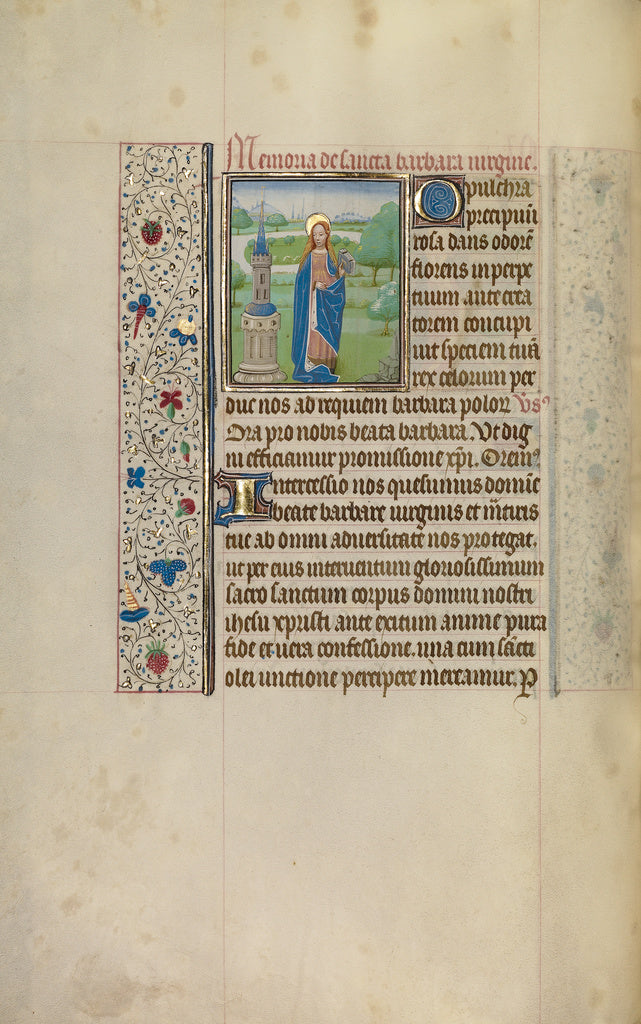 Memoria de sancta barbara uirgine.
O pulchra
precipuū
rosa dans odorē
florens in perpe
tuum ante crea
torem concupi
uit speciem tuā
rex celorum per
duc nos ad requiem barbara polorꝫ vsꝰ
Ora pro nobis beata barbara. Vt dig
ni efficiamur promissione xpi. Oremꝰ
Intercessio nos quesumus domine
beate barbare uirginis et m̄tiris
tue ab omni aduersitate nos protegat.
ut per eius interuentum gloriosissimum
sacro sanctum corpus domini nostri
ihesu xpristi ante exitum anime pura
fide et uera confessione. una cum sācti
olei unctione percipere mereamur. P